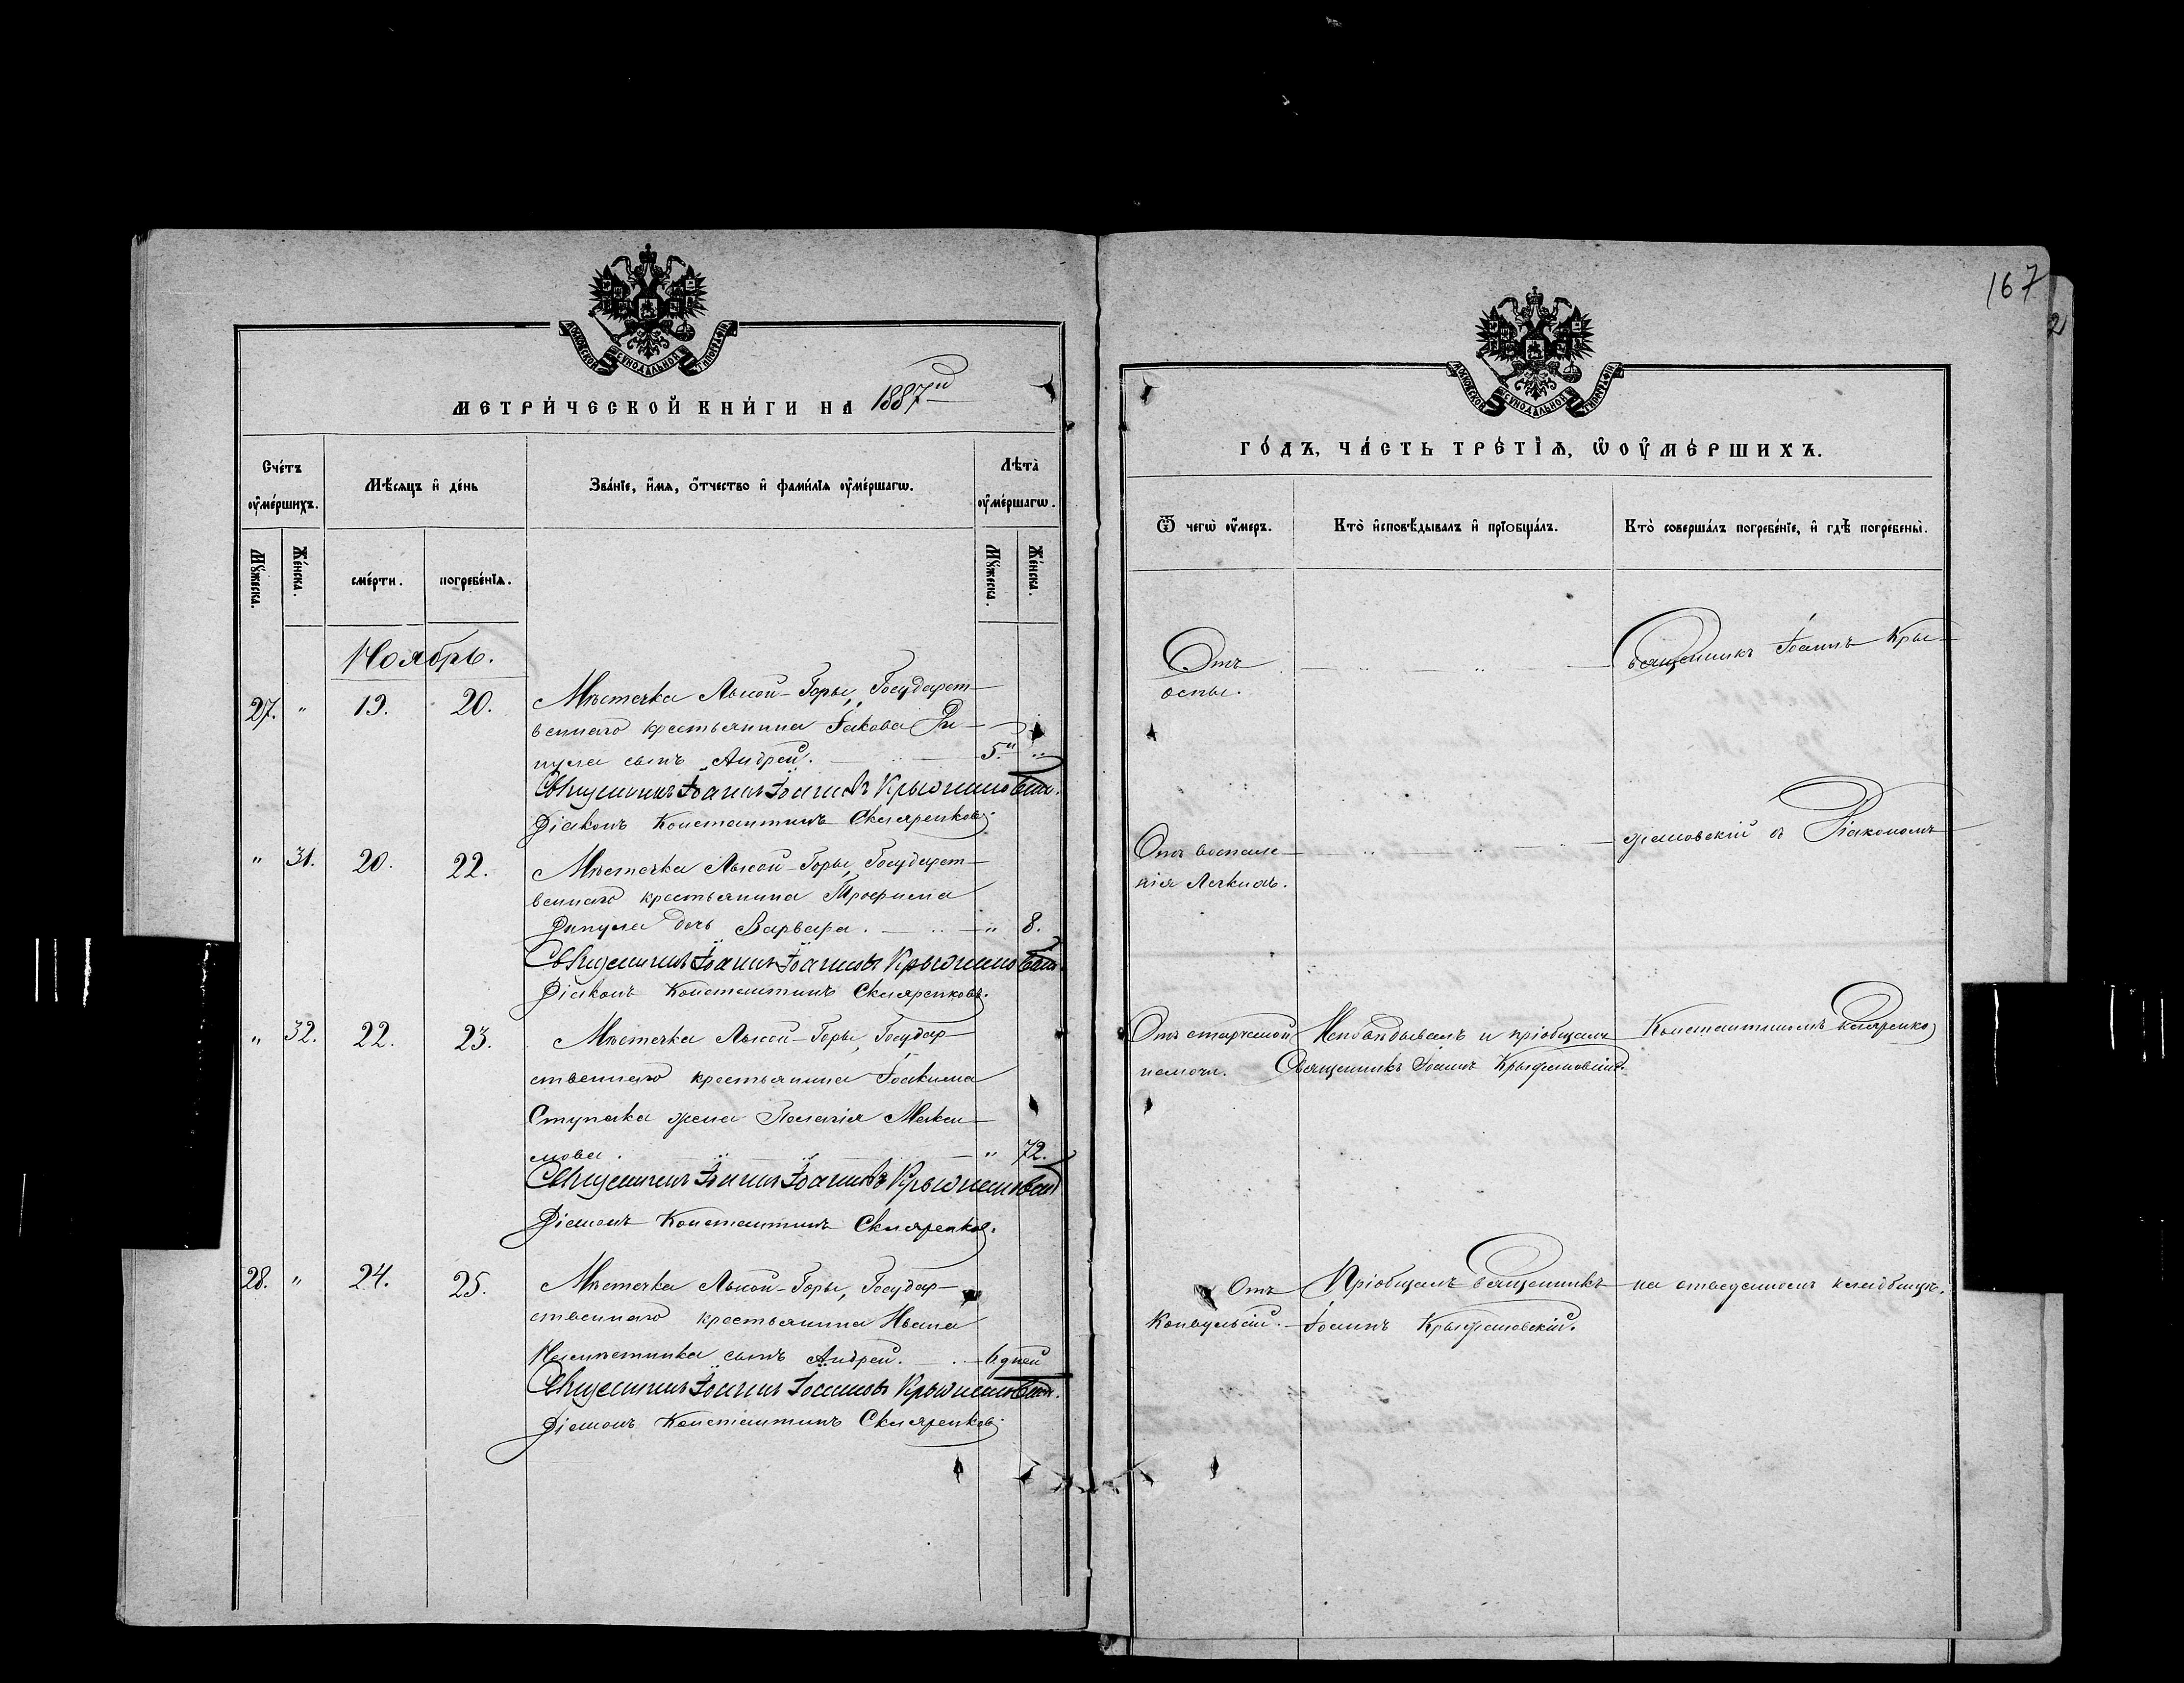 167
2
МОСКОВСКОЙ СУНОДАЛЬНОЙ ТИПОГРАФІИ
МЕТРИ́ЧЕСКОЙ КНИ́ГИ НА 1887й
Сче́тъ ᲂу҆ме́ршихъ.
Мѣ́сяцъ и҆ де́нь
Зва́нїе, и҆́мѧ, ѻ҆́тчество и҆ фами́лїѧ ᲂу҆ме́ршагѡ.
Лѣта̀ ᲂу҆ме́ршагѡ.
Мꙋ́жеска.
Же́нска.
сме́рти.
погребе́нїѧ.
Мꙋ́жеска.
Же́нска.
Ноябрь.
27. " 19. 20. Мѣстечка Лысой-Горы, Государст-
веннаго крестьянина Іакова Ри-
пула сынъ Андрей. 5. "
Священникъ Іоаннъ Іоанновъ Крыжановскій.
Діаконъ Константинъ Скляренковъ.
" 31. 20. 22. Мѣстечка Лысой-Горы, Государст-
веннаго крестьянина Трофима
Рипула дочь Варвара. " 8.
Священникъ Іоаннъ Іоанновъ Крыжановскій.
Діаконъ Константинъ Скляренковъ.
" 32. 22. 23. Мѣстечка Лысой-Горы, Государ-
ственнаго крестьянина Іоакима
Ступака жена Пелагія Макси-
мова. " 72.
Священникъ Іоаннъ Іоанновъ Крыжановскій
Діаконъ Константинъ Скляренковъ.
28. " 24. 25. Мѣстечка Лысой-Горы, Государ-
ственнаго крестьянина Ивана
сынъ Андрей. 6 дней
Священникъ Іоаннъ Іоанновъ Крыжановскій.
Діаконъ Константинъ Скляренковъ.
МОСКОВСКОЙ СУНОДАЛЬНОЙ ТИПОГРАФІИ
ГО́ДЪ, ЧА́СТЬ ТРЕ́ТЇѦ, Ѡ҆ ОУ҆МЕ́РШИХЪ.
Ѿ чегѡ̀ ᲂу҆́меръ.
Кто̀ и҆сповѣ́дывалъ и҆ прїобща́лъ.
Кто̀ соверша́лъ погребе́нїе, и҆ гдѣ̀ погребены̀.
Отъ
оспы.
Священникъ Іоаннъ Кры-
Отъ воспале-
нія Легкихъ.
жановскій съ Діакономъ
Отъ старческой
немочи.
Исповѣдывалъ и пріобщалъ
Священникъ Іоаннъ Крыжановскій.
Константиномъ Скляренко
Отъ
Конвульсій.
Пріобщалъ Священникъ
Іоаннъ Крыжановскій.
на отведенномъ кладбищѣ.